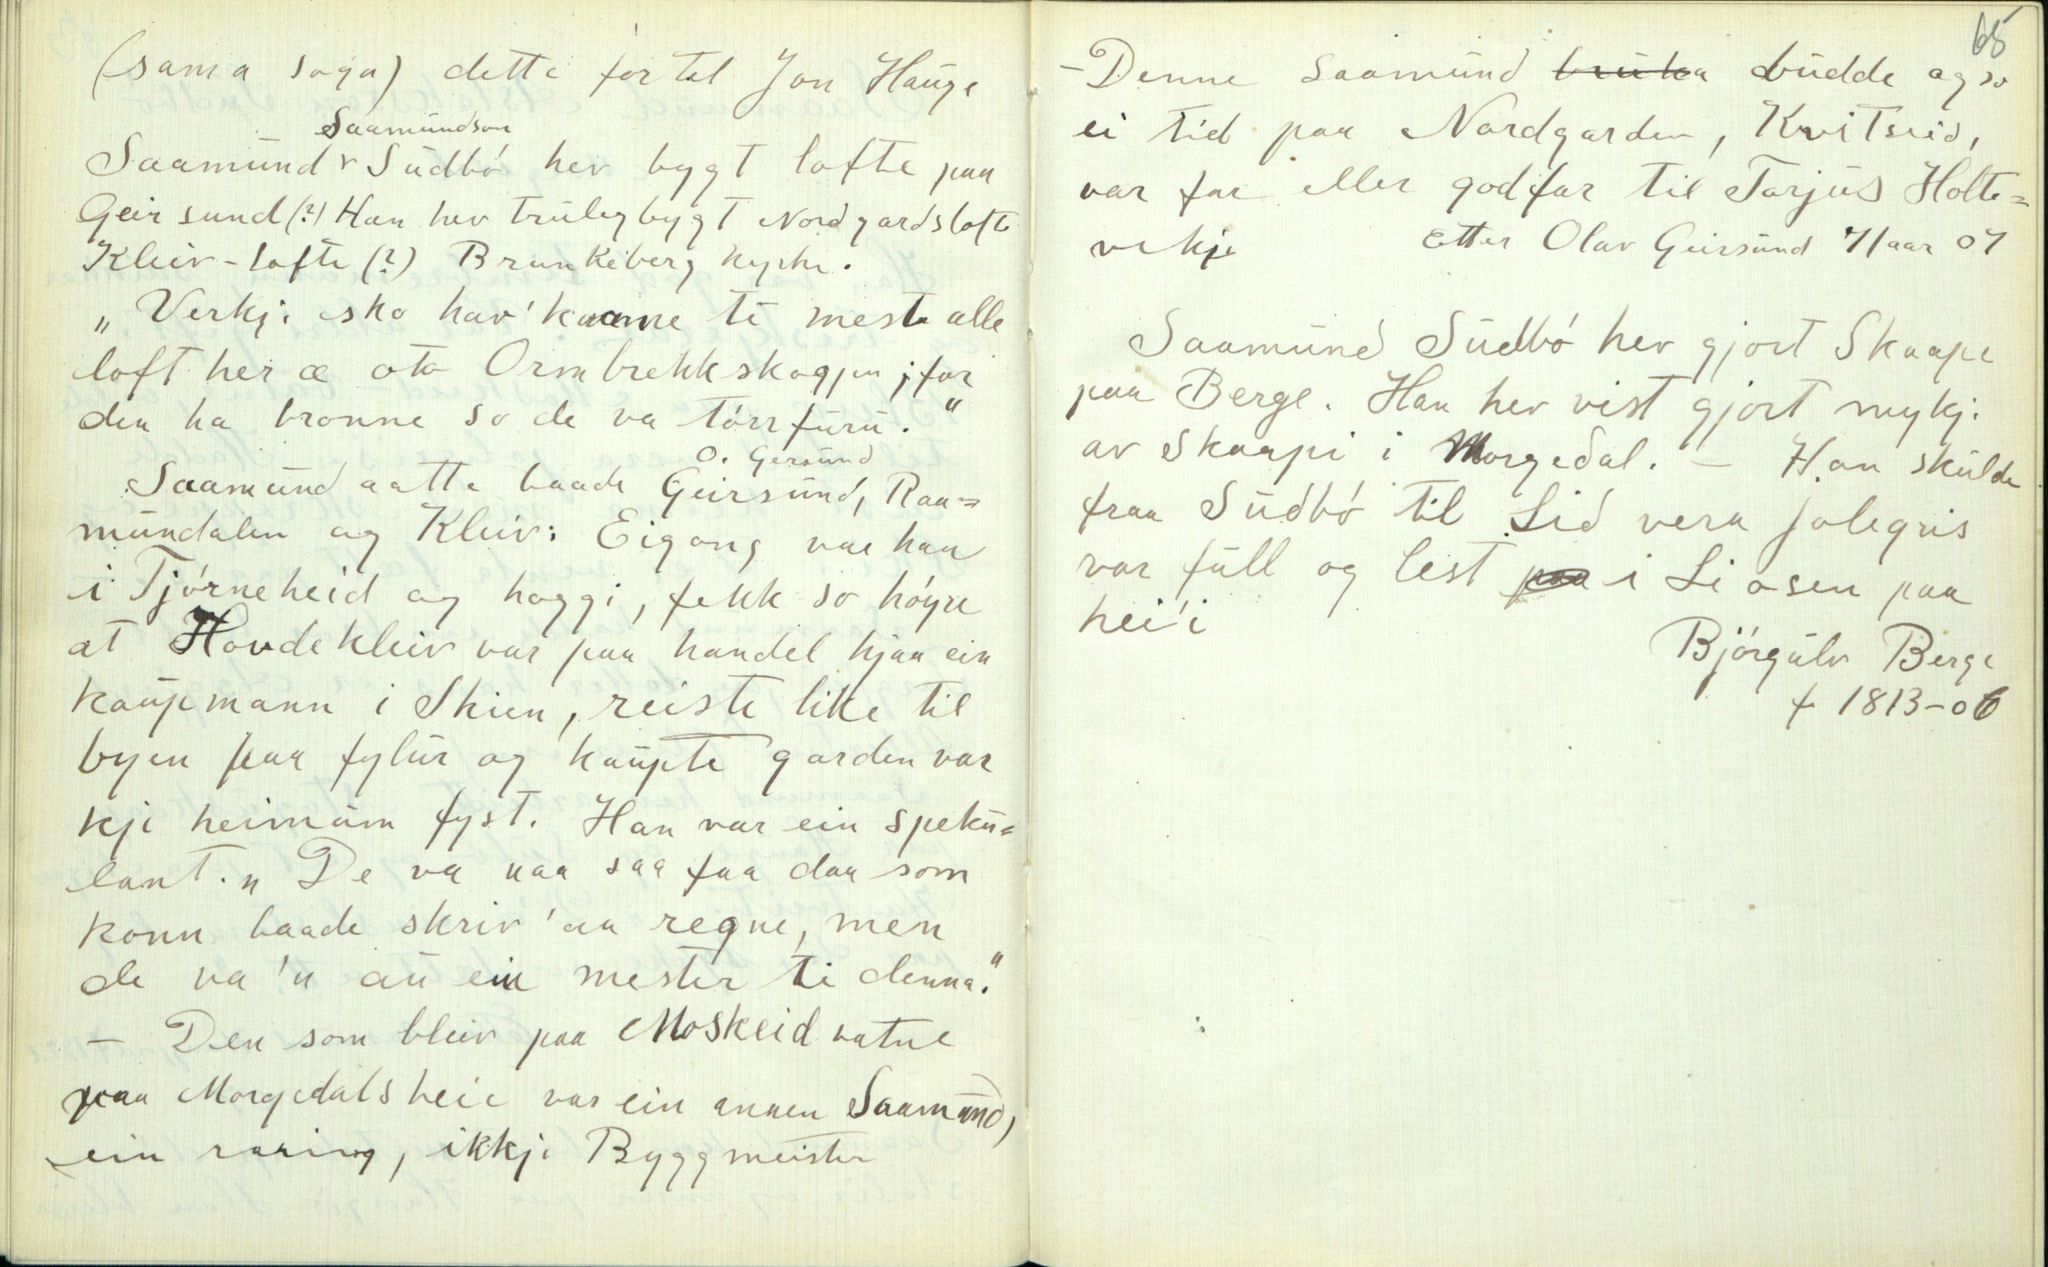 (sama soga) dette fortel Jon Hauge
Saamundson
Saamund v Sudbö hev bygt lofte paa
Geirsund (?) Han hev truleg bygt Nordgardslofte
Kleiv-lofte (?) Brunkeberg kyrke.
„Verkje sko hav' kaame te meste alle
loft her æ ota Ormbrekkskogjen, for
den ha bronne so de va törrfuru."
O. Gersund
Saamund aatte baade Geirsund, Raa=
mundalen og Kleiv: Eigong var han
i Tjörneheid og hoggi, fekk so höyre
at Hovdekleiv var paa handel hjaa ein
kaupmann i Skien, reiste like til
byen paa fylur og kaupte garden var
kje heimum fyst. Han var ein speku=
lant. „De va naa saa faa daa som
konn baade skriv' aa regne, men
de va 'n au ein mester ti denna."
– Den som bleiv paa Moskeid vatne
paa Morgedalsheie var ein annen Saamund,
ein raring, ikkje Byggmeister
65
– Denne Saamund bruka budde ogso
ei tid paa Nordgarden, Kvitseid,
var far eller godfar til Tarjus Holte=
vekje Etter Olav Geirsund 71 aar 07
Saamund Sudbö hev gjort Skaape
paa Berge. Han hev vist gjort mykje
av skaapi i Morgedal. – Han skulde
fraa Sudbö til Lid vera jolegris
var full og lest paa i Li osen paa
hei'i
Björgulv Berge
f 1813-06